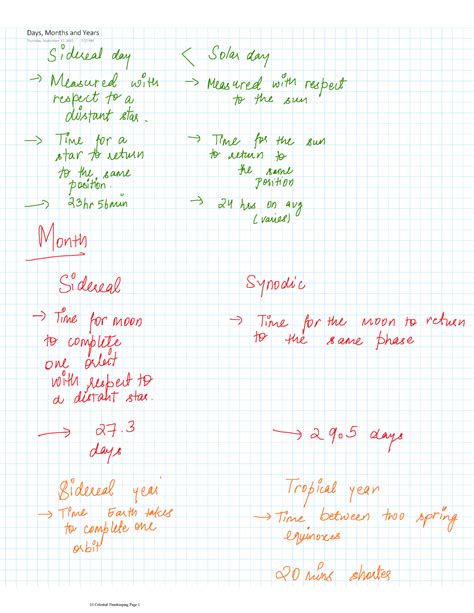 Days, Months and Years
Sidereal day < Solar day
→ Measured with
respect to a
distant star.
→ Measured with respect
to the sun
→ Time for a
star to return
to the same
position.
→ Time for the sun
to return to
the same
position
→ 23hr 56min
→ 24 hrs on avg
(varies)
Month
Sidereal
Synodic
→ Time for moon
to complete
one orbit
with respect to
a distant star.
→ Time for the moon to return
to the same phase
→ 27.3
days
→ 29.5 days
Sidereal year
Tropical year
→ Time Earth takes
to complete one
orbit
→ Time between two spring
equinoxes
20 mins shorter
Celestial Timekeeping Page 1